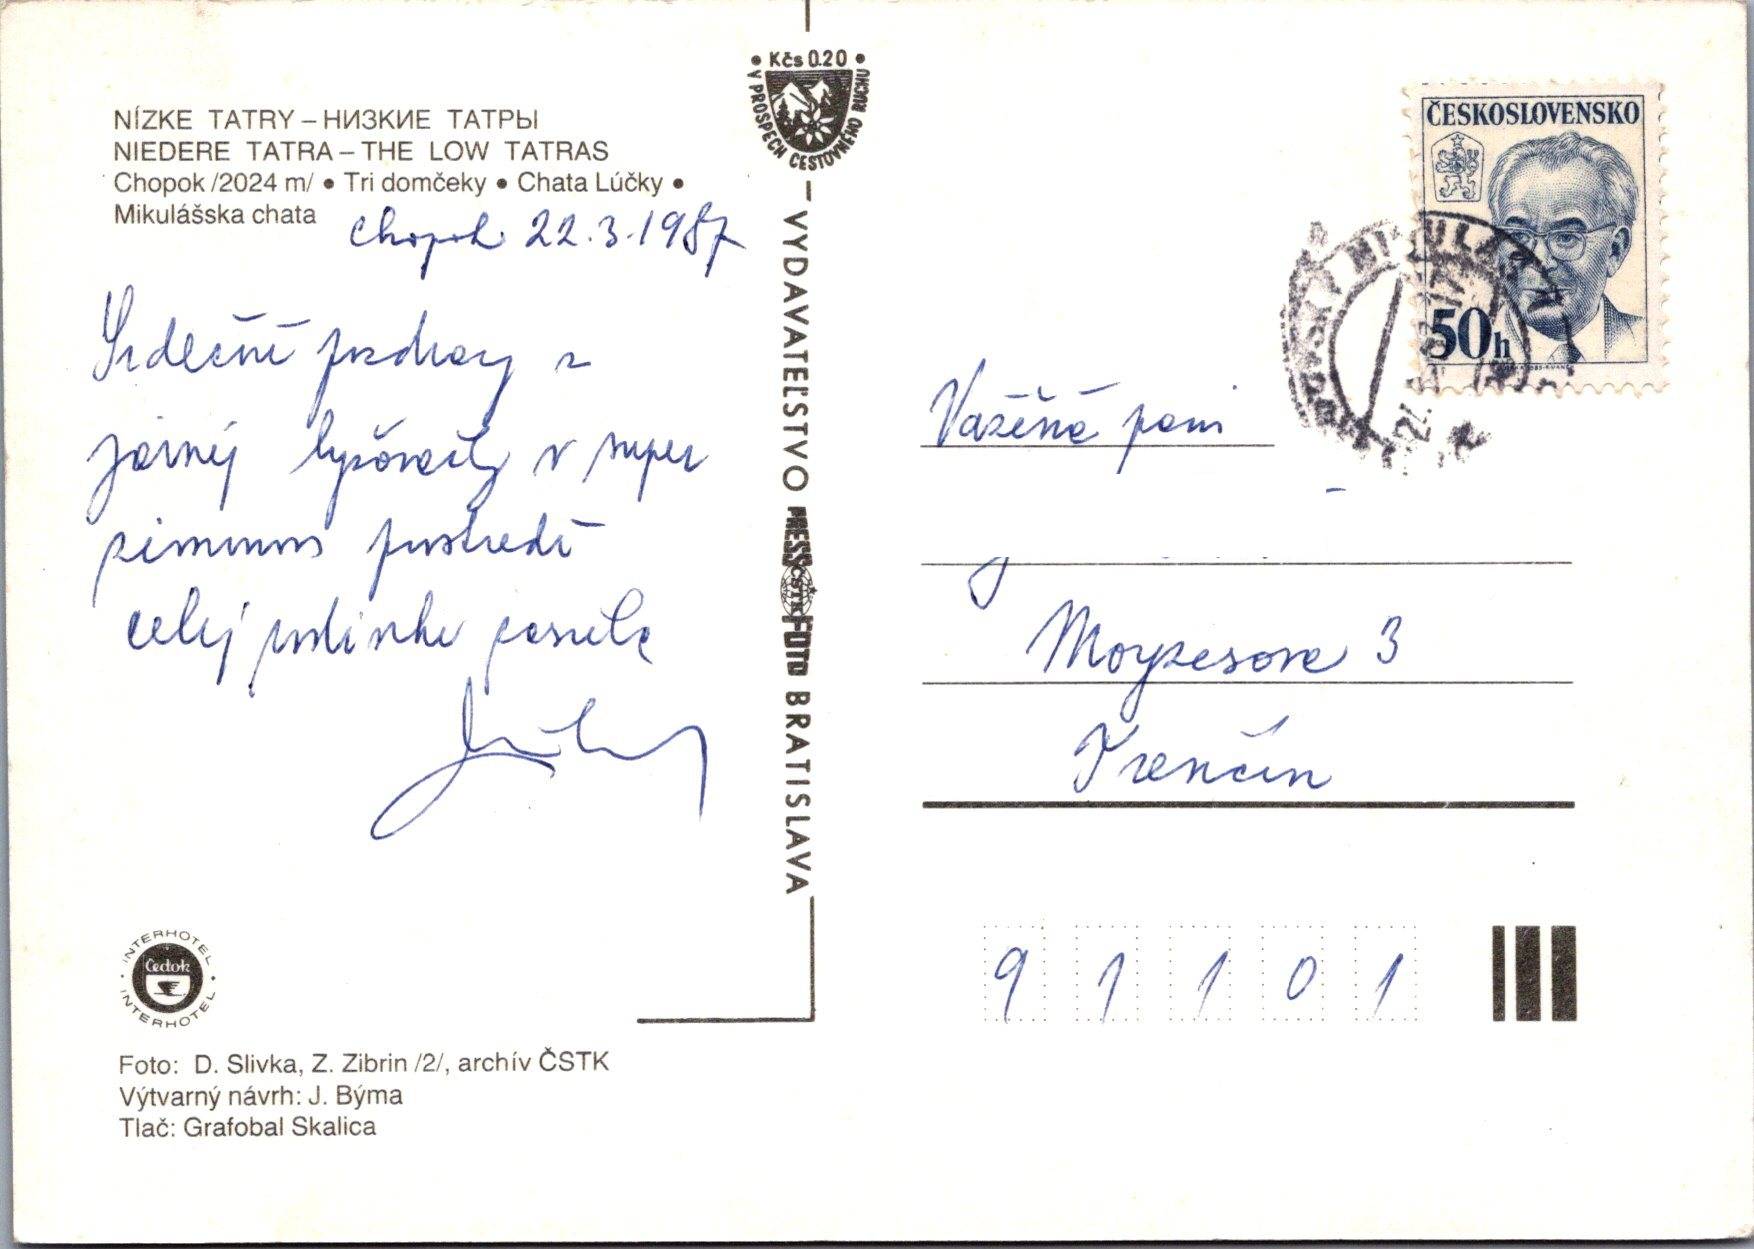 NÍZKE TATRY – НИЗКИЕ ТАТРЫ
NIEDERE TATRA – THE LOW TATRAS
Chopok /2024 m/ • Tri domčeky • Chata Lúčky •
Mikulášska chata
Chopok 22.3.1987
Srdečné pozdravy z
jarnej lyžovačky v super
zimnom prostredí
celej rodinke posiela
• Kčs 0.20 •
V PROSPECH CESTOVNÉHO RUCHU
VYDAVATEĽSTVO PRESSFOTO BRATISLAVA
ČSTK
ČESKOSLOVENSKO
50h
Vážená pani
Moyzesova 3
Trenčín
91101
INTERHOTEL
Čedok
INTERHOTEL
Foto: D. Slivka, Z. Zibrin /2/, archív ČSTK
Výtvarný návrh: J. Býma
Tlač: Grafobal Skalica